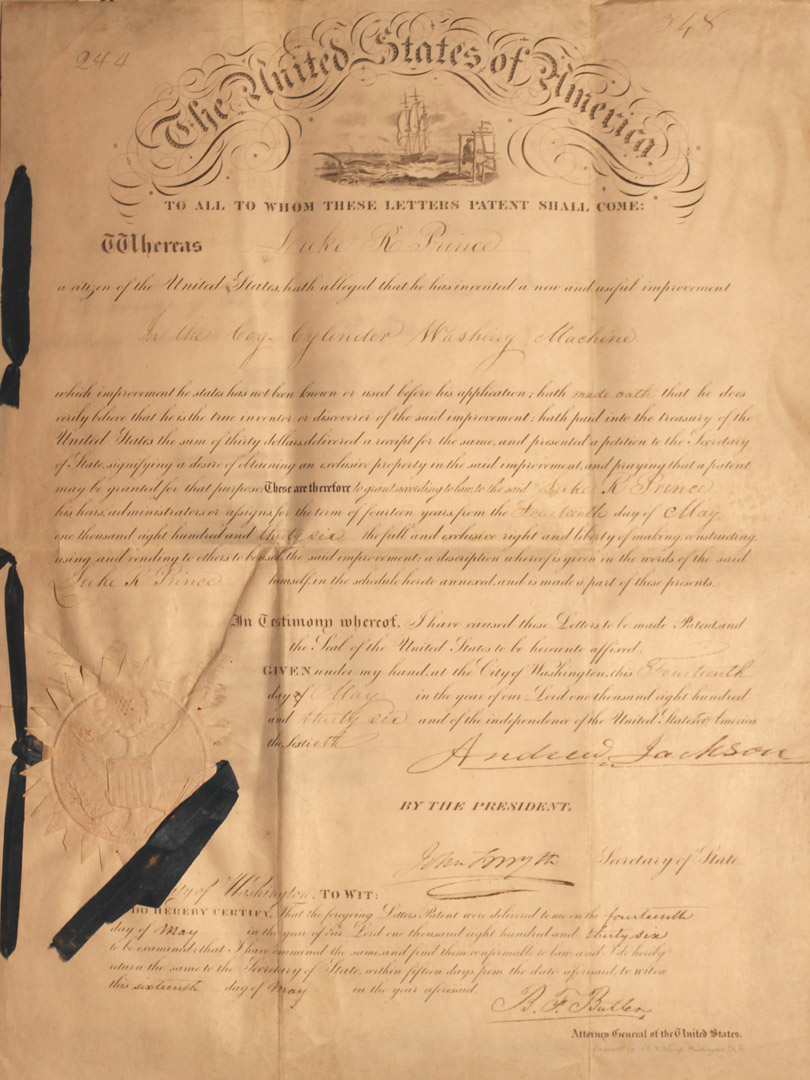 244
348
The United States of America
TO ALL TO WHOM THESE LETTERS PATENT SHALL COME:
Whereas Luke R Prince
a citizen of the United States, hath alleged that he has invented a new and useful improvement
In the Cog-Cylinder Washing Machine
which improvement he states has not been known or used before his application; hath made oath that he does
verily believe that he is the true inventor or discoverer of the said improvement; hath paid into the treasury of the
United States the sum of thirty dollars, delivered a receipt for the same, and presented a petition to the Secretary
of State, signifying a desire of obtaining an exclusive property in the said improvement, and praying that a patent
may be granted for that purpose: These are therefore to grant, according to law, to the said Luke R Prince
his heirs, administrators or assigns, for the term of fourteen years, from the Fourteenth day of May
one thousand eight hundred and thirty six the full and exclusive right and liberty of making, constructing,
using and vending to others to be used, the said improvement; a description whereof is given in the words of the said
Luke R Prince himself, in the schedule hereto annexed, and is made a part of these presents.
In Testimony whereof, I have caused these Letters to be made Patent, and
the Seal of the United States to be hereunto affixed.
GIVEN under my hand, at the City of Washington, this Fourteenth
day of May in the year of our Lord one thousand eight hundred
and thirty six and of the independence of the United States of America
the Sixtieth
Andrew Jackson
BY THE PRESIDENT,
John Forsyth Secretary of State
City of Washington, TO WIT:
DO HEREBY CERTIFY, That the foregoing Letters Patent were delivered to me on the fourteenth
day of May in the year of our Lord one thousand eight hundred and thirty six
to be examined; that I have examined the same, and find them conformable to law, and I do hereby
return the same to the Secretary of State, within fifteen days from the date aforesaid, to wit: on
this sixteenth day of May in the year aforesaid.
B. F. Butler,
Attorney General of the United States.